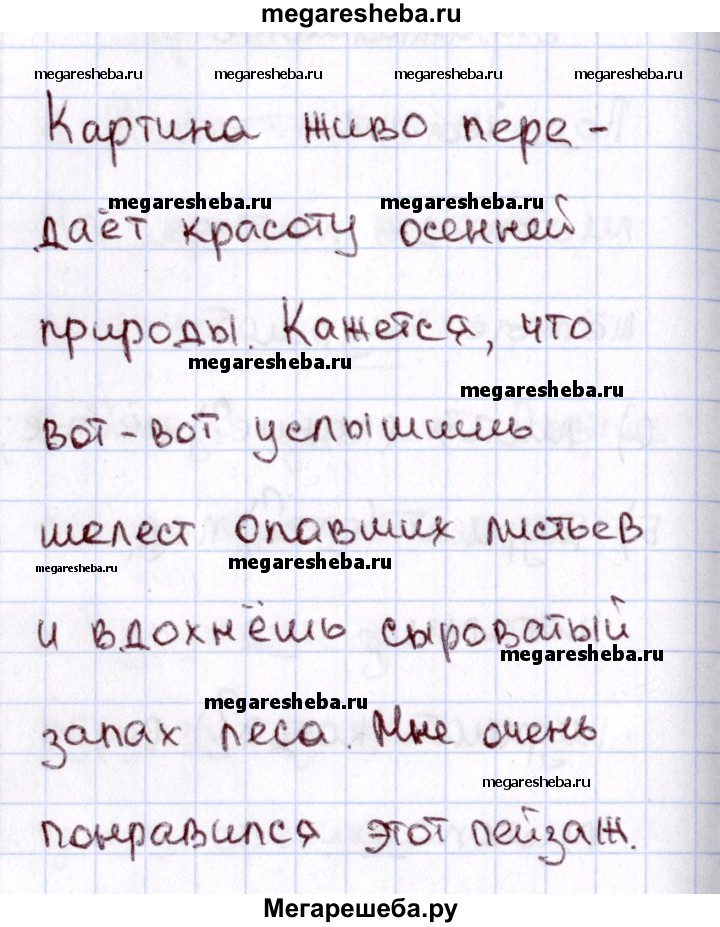 megaresheba.ru
megaresheba.ru megaresheba.ru megaresheba.ru megaresheba.ru
Картина живо пере-
megaresheba.ru megaresheba.ru
даёт красоту осенней
природы. Кажется, что
megaresheba.ru
megaresheba.ru
вот-вот услышишь
шелест опавших листьев
megaresheba.ru megaresheba.ru
и вдохнёшь сыроватый
megaresheba.ru
megaresheba.ru
запах леса. Мне очень
megaresheba.ru
понравился этот пейзаж.
Мегарешеба.ру